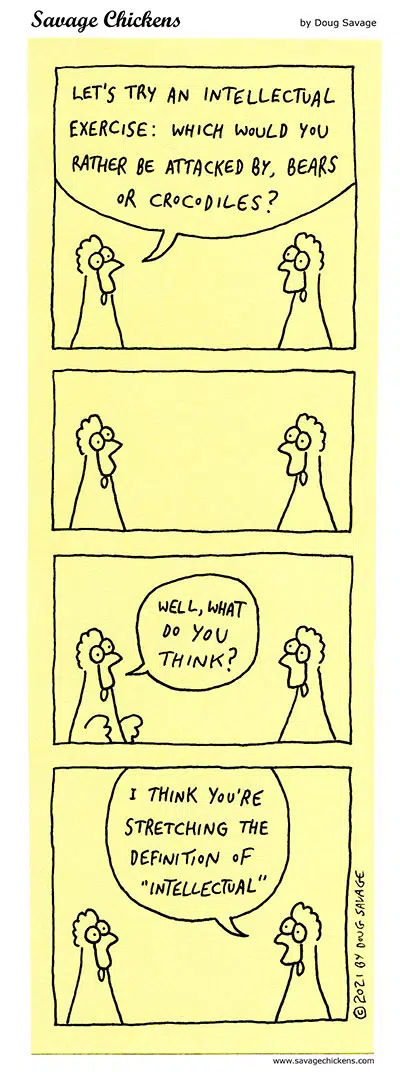 Savage Chickens
by Doug Savage
LET'S TRY AN INTELLECTUAL
EXERCISE: WHICH WOULD YOU
RATHER BE ATTACKED BY, BEARS
OR CROCODILES?
WELL, WHAT
DO YOU
THINK?
I THINK YOU'RE
STRETCHING THE
DEFINITION OF
"INTELLECTUAL"
©2021 BY DOUG SAVAGE
www.savagechickens.com